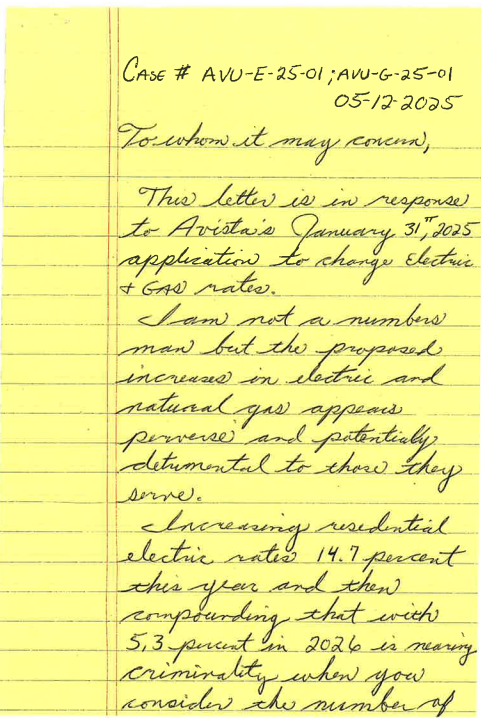 CASE # AVU-E-25-01; AVU-G-25-01
05-12-2025
To whom it may concern,
This letter is in response
to Avista's January 31st, 2025
application to change Electric
+ GAS rates.
I am not a numbers
man but the proposed
increases in electric and
natural gas appears
perverse and potentially
detrimental to those they
serve.
Increasing residential
electric rates 14.7 percent
this year and then
compounding that with
5.3 percent in 2026 is nearing
criminality when you
consider the number of